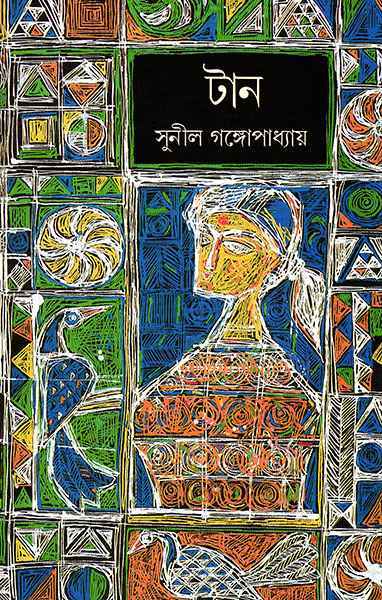 টান
সুনীল গঙ্গোপাধ্যায়